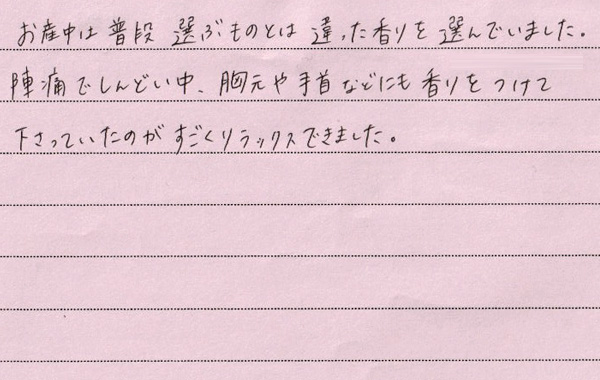 お産中は普段選ぶものとは違った香りを選んでいました。
陣痛でしんどい中、胸元や手首などにも香りをつけて
下さっていたのがすごくリラックスできました。